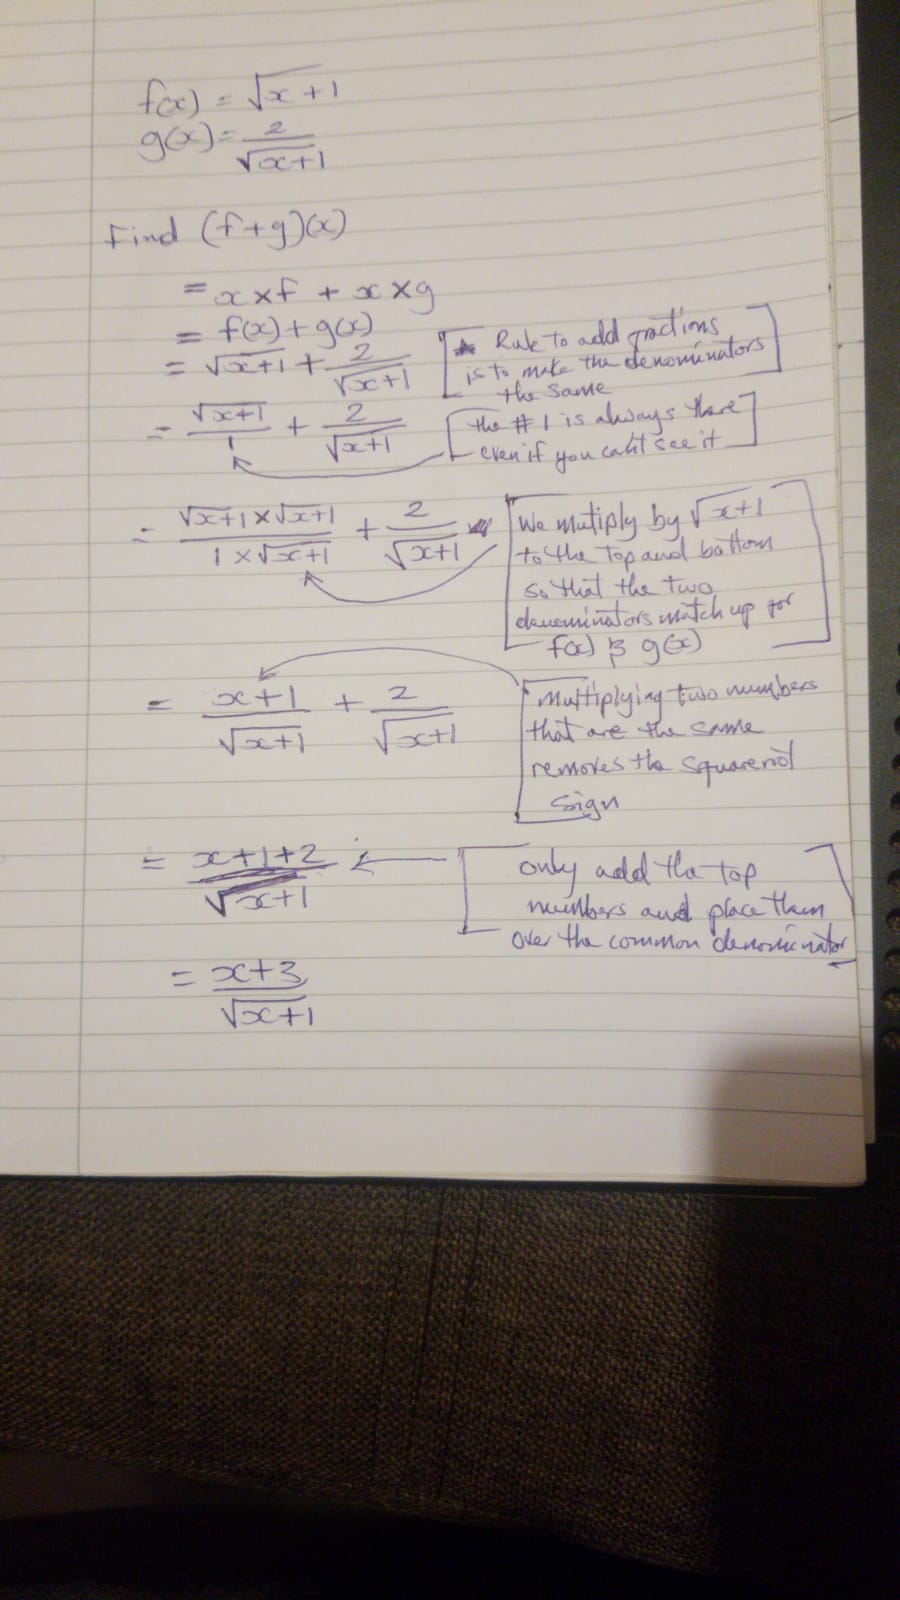 f(x) = √x+1
g(x) = 2/√x+1
Find (f+g)(x)
= x×f + x×g
= f(x) + g(x)
= √x+1 + 2/√x+1
Rule to add fractions
is to make the denominators
the same
= √x+1/1 + 2/√x+1
the #1 is always there
even if you can't see it
= √x+1 × √x+1/1 × √x+1 + 2/√x+1
We mutiply by √x+1
to the Top and bottom
so that the two
denominators match up for
f(x) & g(x)
= x+1/√x+1 + 2/√x+1
Multiplying two numbers
that are the same
removes the squareroot
sign
= x+1+2/√x+1
only add the top
numbers and place them
over the common denominator
= x+3/√x+1